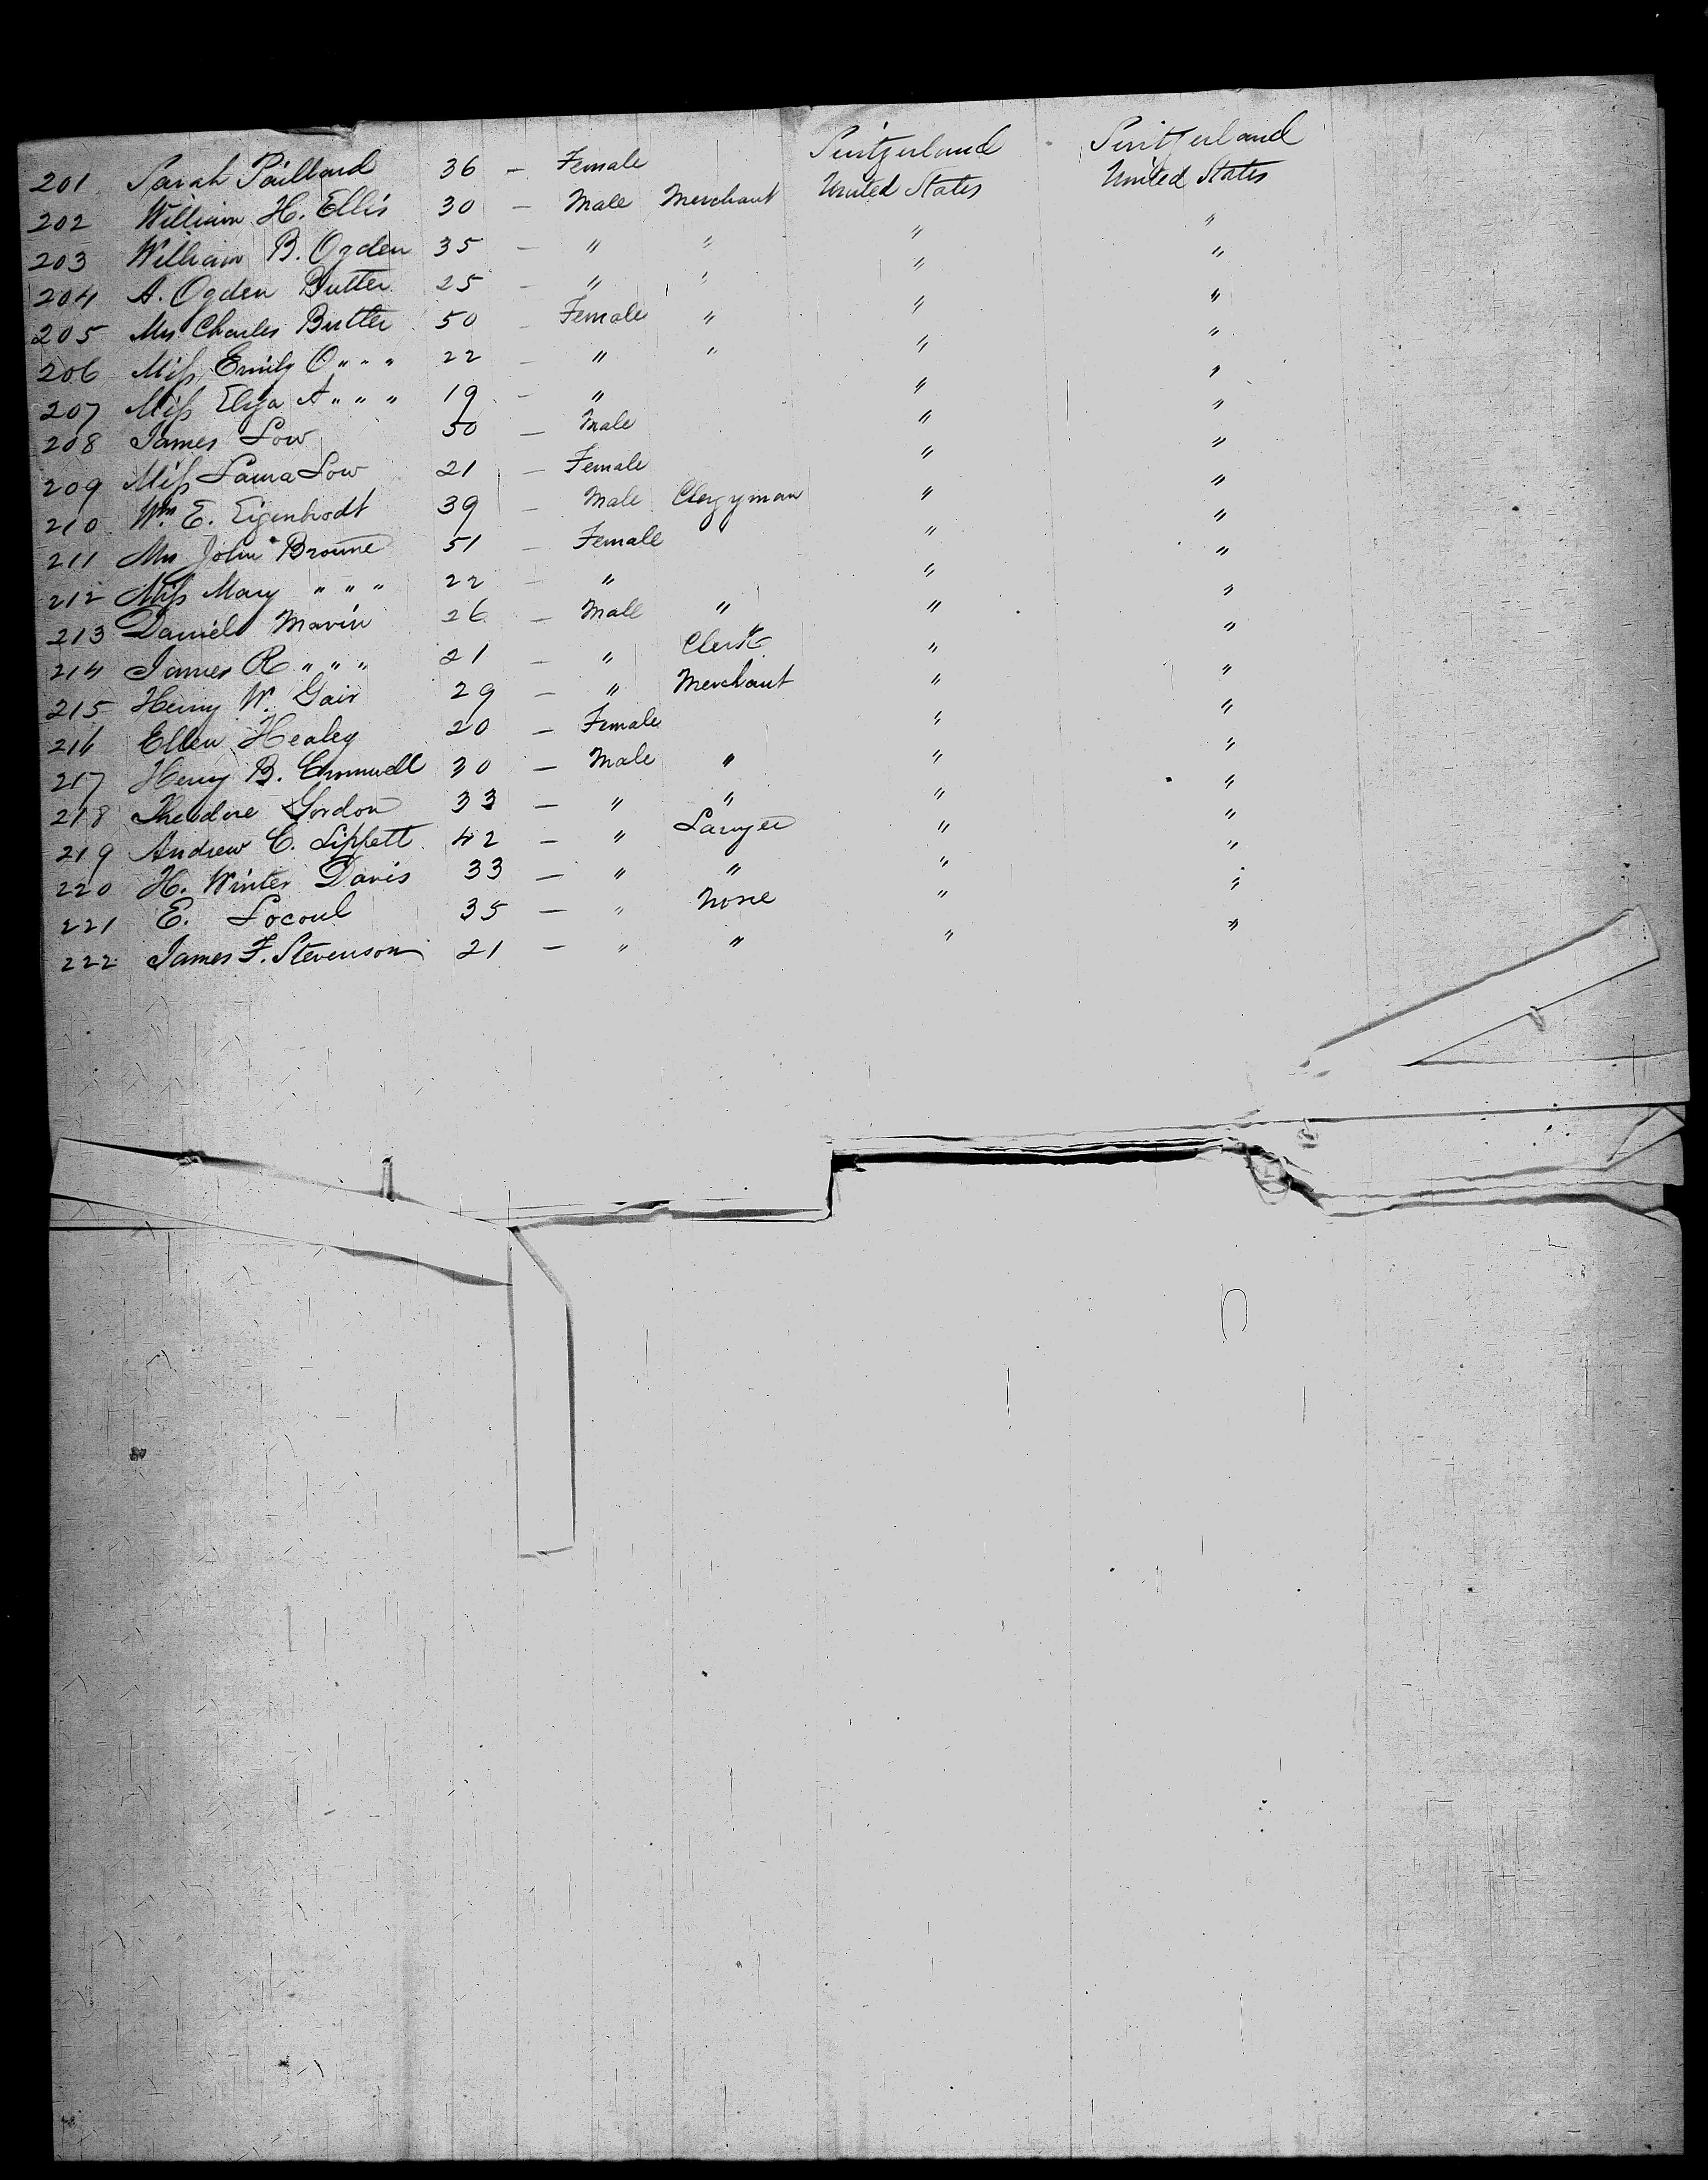 201 Sarah Paillard 36 — Female Switzerland Switzerland
202 William H. Ellis 30 — Male Merchant United States United States
203 William B. Ogden 35 — " " " "
204 A. Ogden Butler 25 — " " " "
205 Mrs Charles Butler 50 — Female " " "
206 Miss Emily O " " " 22 — " " " "
207 Miss Eliza A " " " 19 — " " "
208 James Low 50 — Male " "
209 Miss Laura Low 21 — Female " "
210 Wm E. Eigenbrodt 39 — Male Clergyman " "
211 Mrs John Browne 51 — Female " "
212 Miss Mary " " " 22 — " " "
213 Daniel Marvin 26 — Male " " "
214 James R " " " 21 — " Clerk " "
215 Henry W. Gair 29 — " Merchant " "
216 Ellen Healey 20 — Female " "
217 Henry B. Cromwell 30 — Male " " "
218 Theodore Gordon 33 — " " " "
219 Andrew C. Lippett 42 — " Lawyer " "
220 H. Winter Davis 33 — " " " "
221 E. Locoul 35 — " None " "
222 James F. Stevenson 21 — " " " "